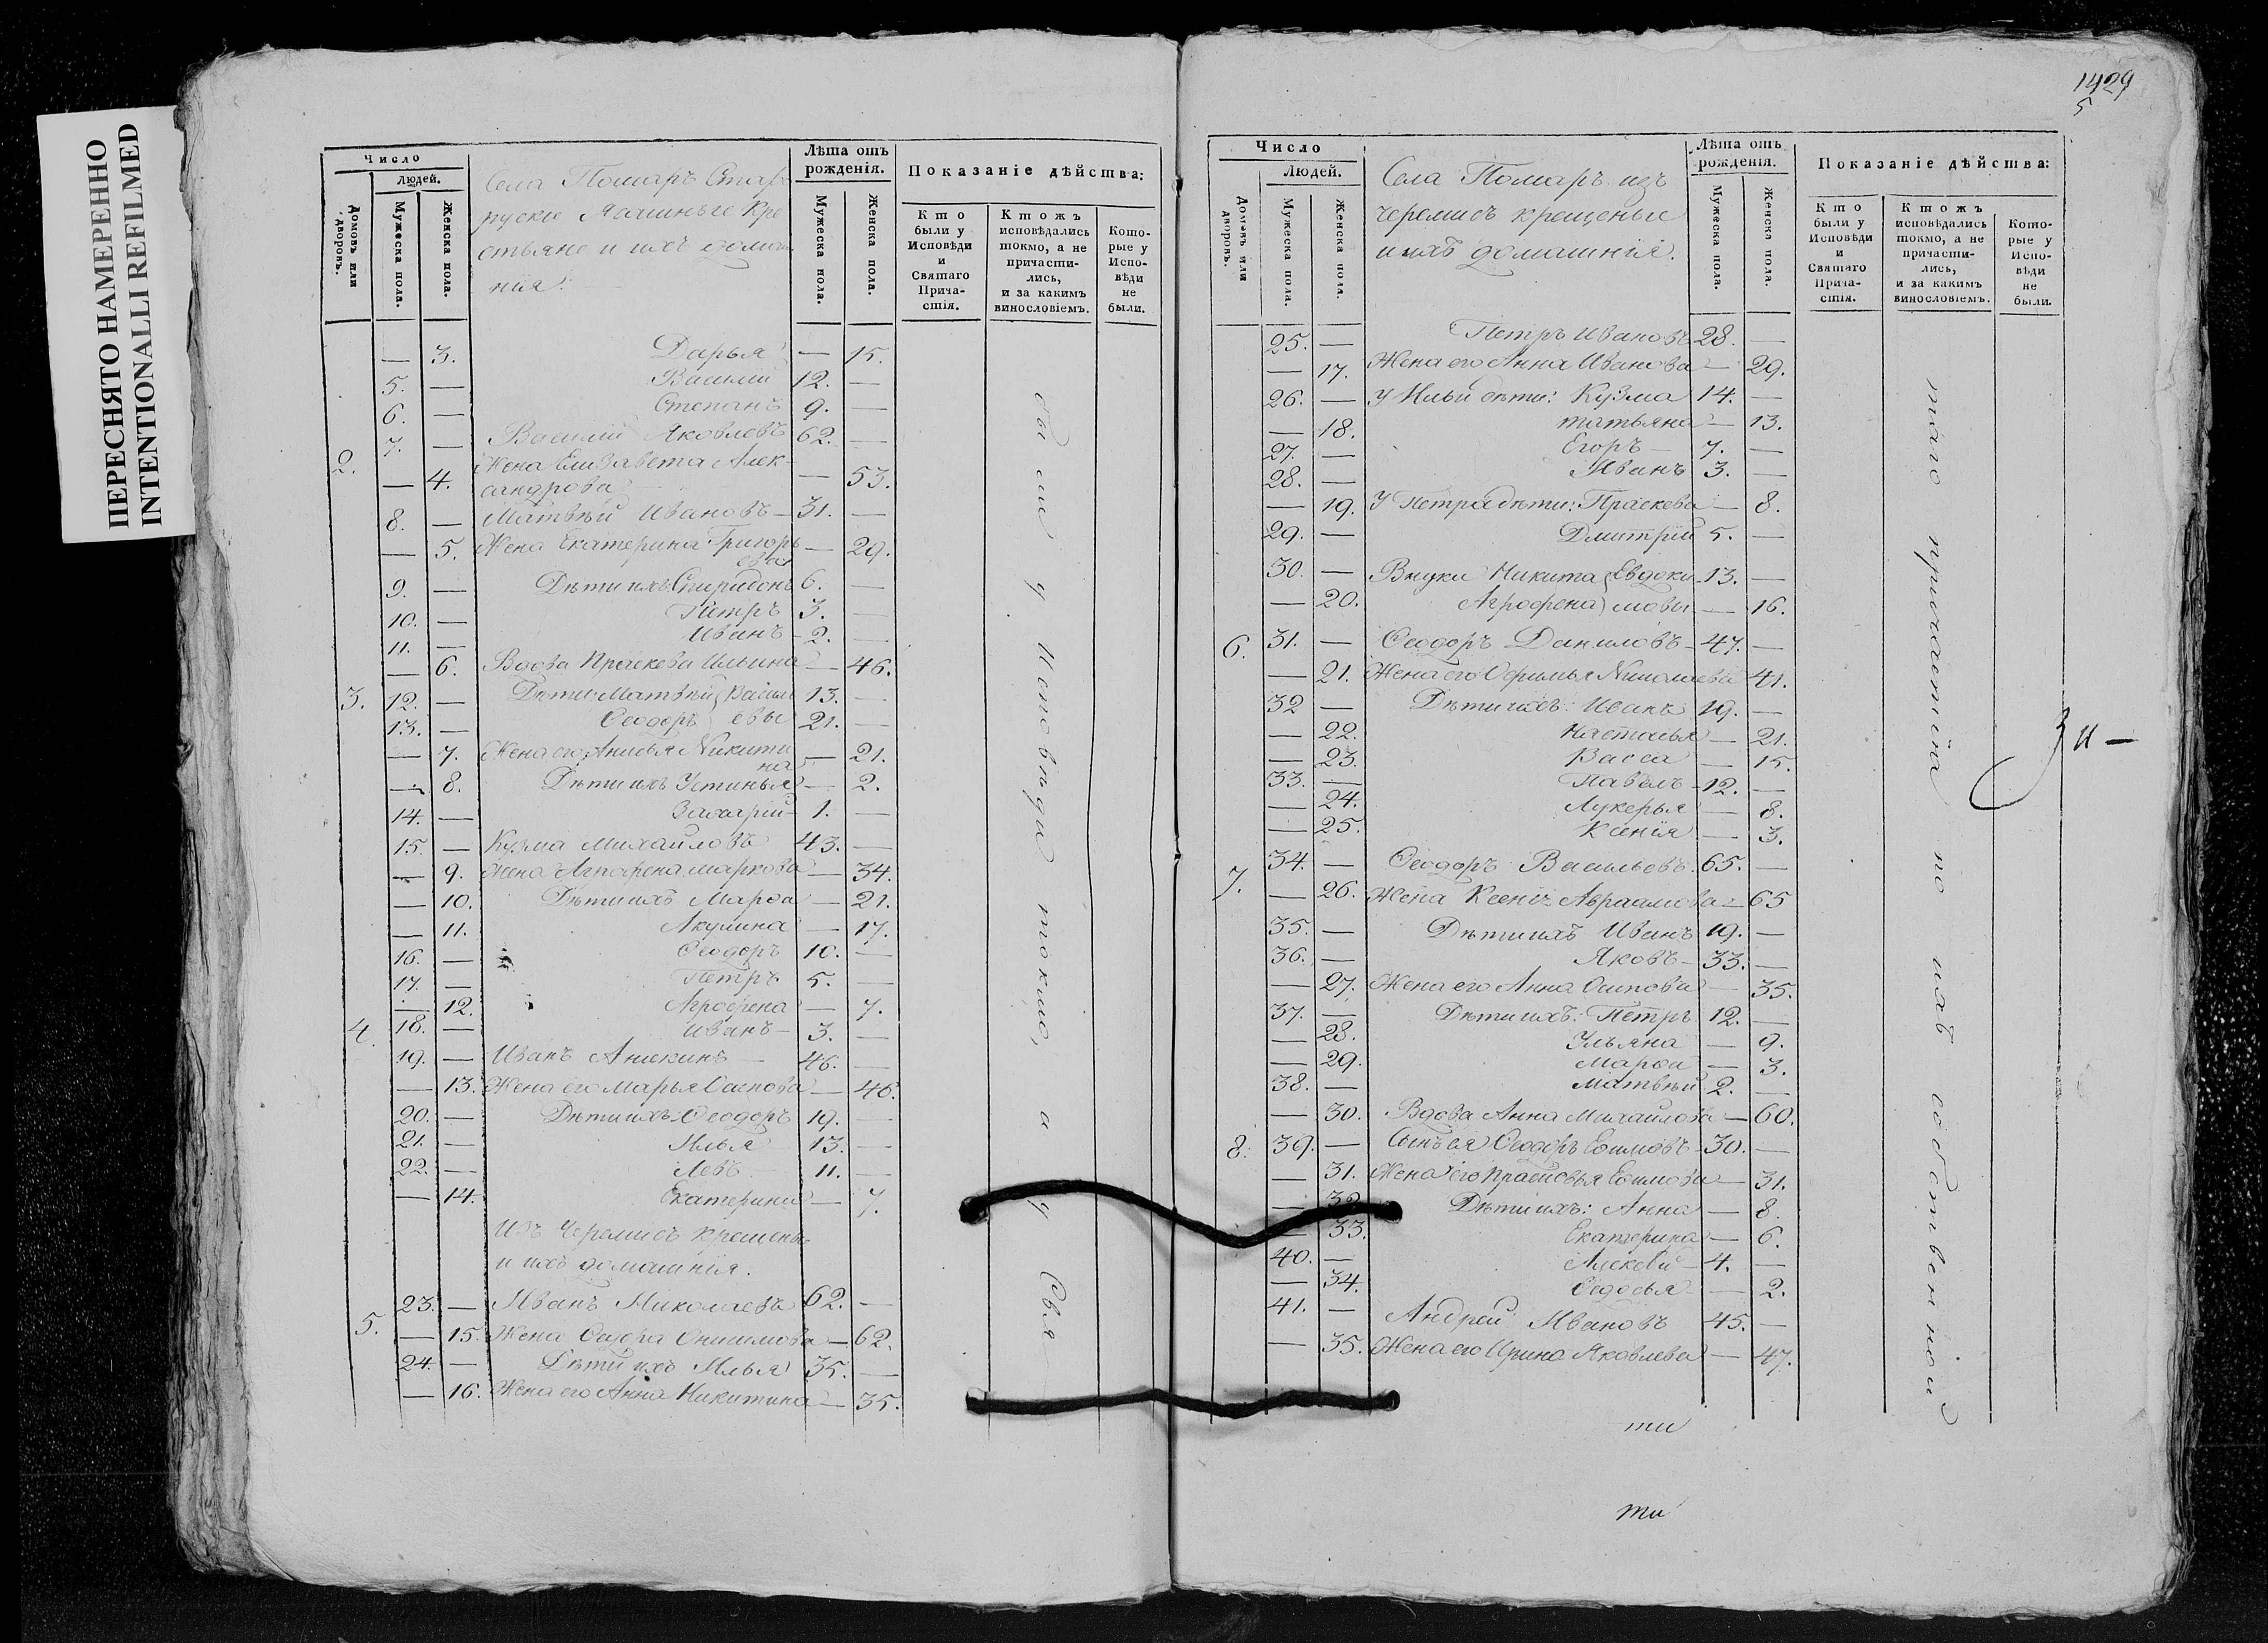 ПЕРЕСНЯТО НАМЕРЕННО
INTENTIONALLI REFILMED
Число
Людей.
Домовъ или дворовъ.
Мужеска пола.
Женска пола.
Села Помаръ Старо
руские Ясашные Кре
стьяне и ихъ домаш
нія:
Лѣта отъ рожденія.
Мужеска пола.
Женска пола.
Показаніе дѣйства:
Кто были у Исповѣди и Святаго Причастія.
Ктожъ исповѣдались токмо, а не причастились, и за какимъ винословіемъ.
Которые у Исповѣди не были.
— 3. Дарья — 15.
5. — Василій 12. —
6. — Степанъ 9. —
7. — Василій Яковлевъ 62. —
2.
Жена Елизавета Алек-
— 4. сандрова — 53.
8. — Матвѣй Ивановъ 31. —
— 5. Жена Екатерина Григорь
ева — 29.
9. — Дѣти ихъ Спиридонъ 6. —
10. — Петръ 3. —
11. — Иванъ 2. —
— 6. Вдова Праскева Ильина — 46.
3. 12. — Дѣти Матвѣй Василь 13. —
13. — Ѳеодоръ евы 21. —
— 7. Жена его Анисья Никити
на — 21.
— 8. Дѣти ихъ Устинья — 2.
14. — Захарій 1. —
15. — Кузма Михайловъ 43. —
— 9. Жена Агрофена Маркова — 34.
— 10. Дѣти ихъ Марѳа — 21.
— 11. Акулина — 17.
16. — Ѳеодоръ 10. —
17. — Петръ 5. —
— 12. Агрофена — 7.
4. 18. — Иванъ 3. —
19. — Иванъ 46. —
— 13. Жена его Марья Осипова — 46.
20. — Дѣти ихъ Ѳеодоръ 19. —
21. — Илья 13. —
22. — Левъ 11. —
— 14. Екатерина — 7.
Изъ Черемисъ крещены
и ихъ домашнія.
23. — Иванъ Николаевъ 62. —
5. — 15. Жена Ѳедора Онисимова — 62.
24. — Дѣти ихъ Илья 35. —
— 16. Жена его Анна Никитина — 35.
были у Исповѣди токмо, а у Свя
1429
5
Число
Людей.
Домовъ или дворовъ.
Мужеска пола.
Женска пола.
Села Помаръ изъ
черемисъ крещеныя
и ихъ домашнія.
Лѣта отъ рожденія.
Мужеска пола.
Женска пола.
Показаніе дѣйства:
Кто были у Исповѣди и Святаго Причастія.
Ктожъ исповѣдались токмо, а не причастились, и за какимъ винословіемъ.
Которые у Исповѣди не были.
25. — Петръ Ивановъ 28. —
— 17. Жена его Анна Иванова — 29.
26. — У Ильи дѣти: Кузма 14. —
— 18. татьяна — 13.
27. — Егоръ 7. —
28. — Иванъ 3. —
— 19. У Петра дѣти: Праскева — 8.
29. — Дмитрій 5. —
30. — Внуки Никита Евдоки 13. —
— 20. Агрофена мовы — 16.
6. 31. — Ѳеодоръ Даниловъ 47. —
— 21. Жена его Офимья Николаева 41.
32 — Дѣти ихъ: Иванъ 19. —
— 22. Настасья — 21.
— 23. Васса — 15.
33. — Павелъ 12. —
— 24. Лукерья — 8.
— 25. Ксенія — 3.
34. — Ѳеодоръ Васильевъ 65. —
7. — 26. Жена Ксенія Авраамова — 65
35. — Дѣти ихъ Иванъ 19. —
36. — Яковъ 33. —
— 27. Жена его Анна Осипова — 35.
37. — Дѣти ихъ: Петръ 12. —
— 28. Ульяна — 9.
— 29. Марѳа — 3.
38. — Матвѣй 2. —
— 30. Вдова Анна Михайлова — 60.
8. 39. — Сынъ ея Ѳеодоръ Ефимовъ 30. —
— 31. Жена его Ефимова — 31.
— 32. Дѣти ихъ: Анна — 8.
— 33. Екатерина — 6.
40. — Алексѣй 4. —
— 34. Ѳедосья — 2.
41. — Андрей Ивановъ 45. —
— 35. Жена его Ирина Яковлева — 47.
таго причастія по ихъ собственной
ти
ти